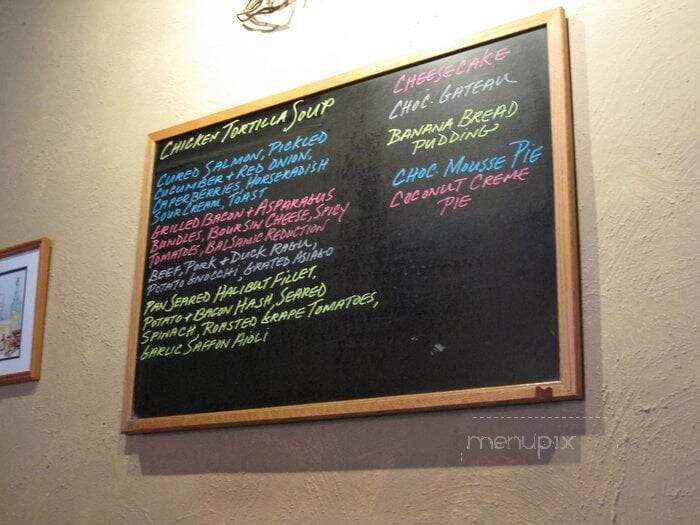 CHICKEN TORTILLA SOUP
CURED SALMON, PICKLED
CUCUMBER + RED ONION,
CAPERBERRIES, HORSERADISH
SOUR CREAM, TOAST
GRILLED BACON + ASPARAGUS
BUNDLES, BOURSIN CHEESE, SPICY
TOMATOES, BALSAMIC REDUCTION
BEEF, PORK + DUCK RAGU,
POTATO GNOCCHI, GRATED ASIAGO
PAN SEARED HALIBUT FILLET,
POTATO + BACON HASH, SEARED
SPINACH, ROASTED GRAPE TOMATOES,
GARLIC SAFFON AIOLI
CHEESECAKE
CHOC. GATEAU
BANANA BREAD
PUDDING
CHOC. MOUSSE PIE
COCONUT CREME
PIE
menupix